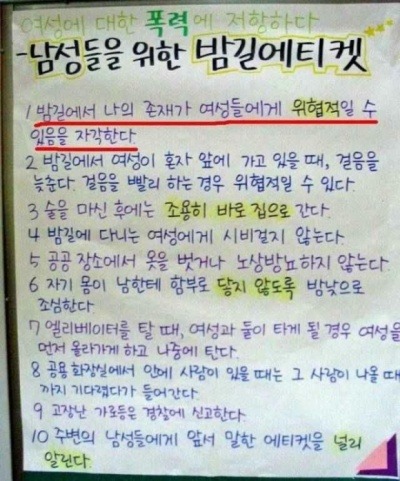 여성에 대한 폭력에 저항하다
-남성들을 위한 밤길에티켓
1 밤길에서 나의 존재가 여성들에게 위협적일 수
있음을 자각한다.
2 밤길에서 여성이 혼자 앞에 가고 있을 때, 걸음을
늦춘다. 걸음을 빨리 하는 경우 위협적일 수 있다.
3 술을 마신 후에는 조용히 바로 집으로 간다.
4 밤길에 다니는 여성에게 시비걸지 않는다.
5 공공 장소에서 옷을 벗거나 노상방뇨하지 않는다.
6 자기 몸이 남한테 함부로 닿지 않도록 밤낮으로
조심한다.
7 엘리베이터를 탈 때, 여성과 둘이 타게 될 경우 여성을
먼저 올라가게 하고 나중에 탄다.
8 공용 화장실에서 안에 사람이 있을 때는 그 사람이 나올 때
까지 기다렸다가 들어간다.
9 고장난 가로등은 경찰에 신고한다.
10 주변의 남성들에게 앞서 말한 에티켓을 널리
알린다.